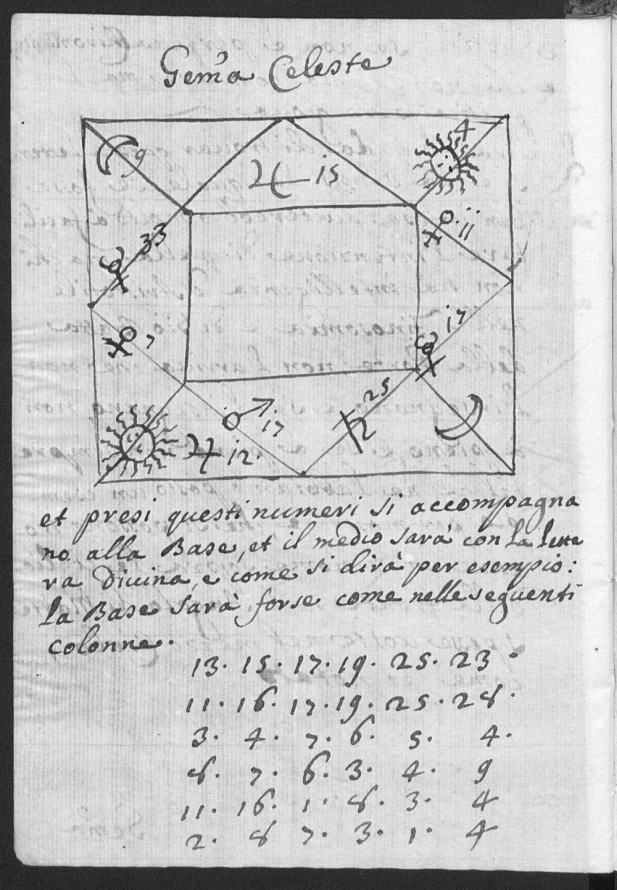 Gem̃a Celeste
☽ 9
♃ 15
☉ 4
☿ 33
♀ 11
♀ 7
☿ 17
☉
♃ 12
♂ 17
♄ 25
☽
et presi questi numeri si accompagna
no alla Base, et il medio sarà con la lette
ra Divina, e come si dirà per esempio:
la Base sarà forse come nelle seguenti
colonne.
13. 15. 17. 19. 25. 23.
11. 16. 17. 19. 25. 28.
3. 4. 7. 6. 5. 4.
8. 7. 6. 3. 4. 9
11. 16. 1. 8. 3. 4
2. 8 7. 3. 1. 4